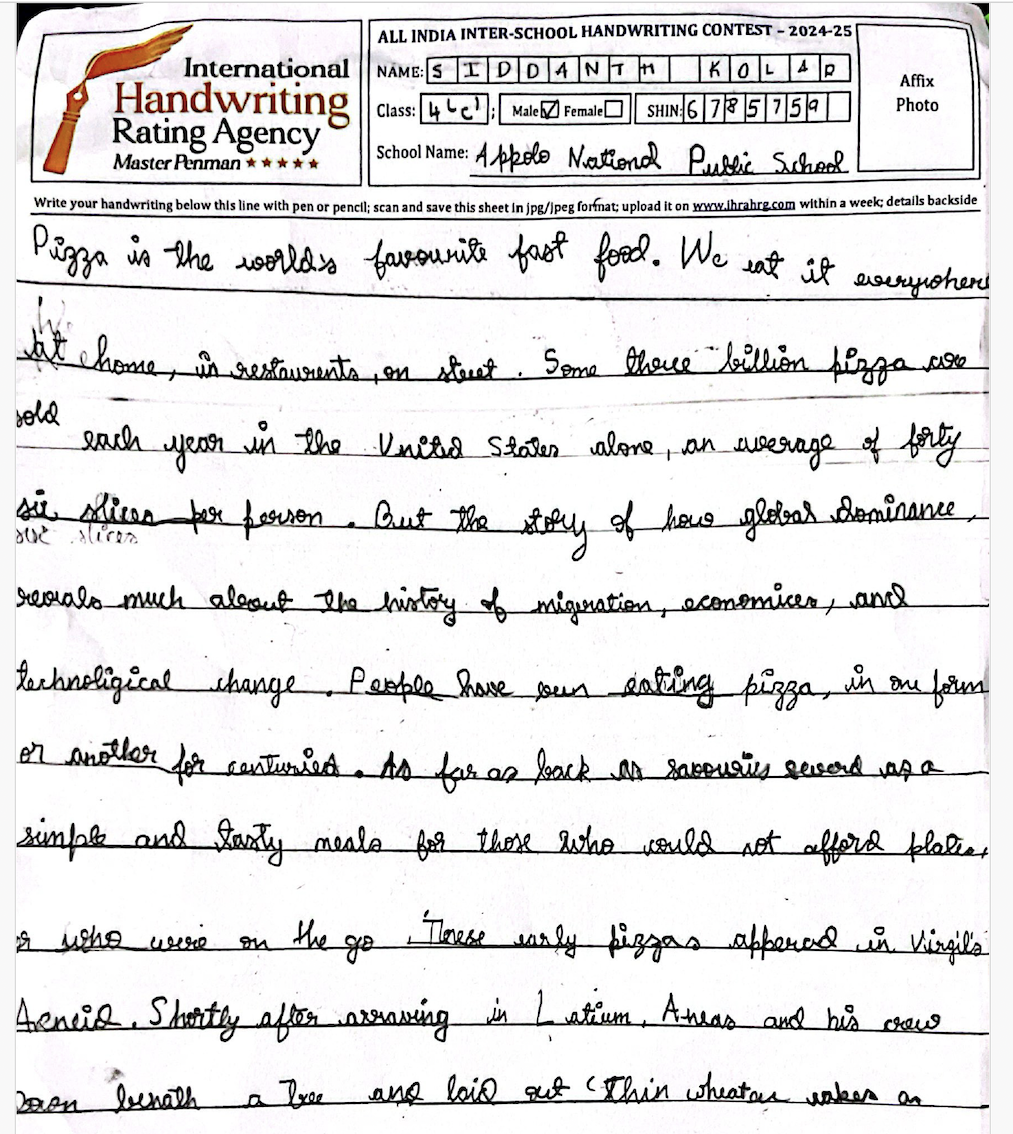 International
Handwriting
Rating Agency
Master Penman ★★★★★
ALL INDIA INTER-SCHOOL HANDWRITING CONTEST – 2024-25
NAME: SIDDANTH KOLAR
Class: 4'c'; Male ☑ Female ☐ SHIN: 6785759
School Name: Appolo National Public School
Affix
Photo
Write your handwriting below this line with pen or pencil; scan and save this sheet in jpg/jpeg format; upload it on www.ihrahrg.com within a week; details backside
Pizza is the worlds favourite fast food. We eat it everywhere
At home, in restaurents, on steet. Some three billion pizza are
sold each year in the United States alone, an average of forty
six slices per person. But the story of how global dominance,
six slices
reveals much about the history of migration, economices, and
technoligical change. People have been eating pizza, in one form
or another for centuried. As far as back as savouries severd as a
simple and tasty meals for those who could not afford plates,
or who were on the go These early pizzas appered in Virgil's
Aeneid. Shortly after arraving in Latium, Aneas and his crew
benath a tree and laid out (Thin wheaten cakes as